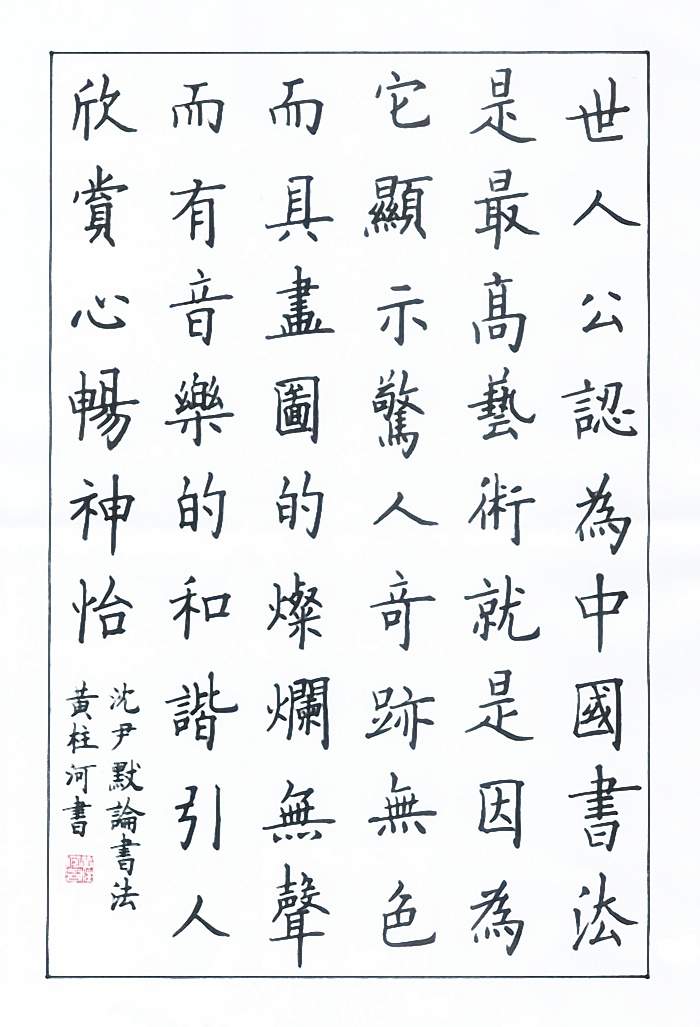 世人公認為中國書法
是最高藝術就是因為
它顯示驚人奇跡無色
而具畫圖的燦爛無聲
而有音樂的和諧引人
欣賞心暢神怡
沈尹默論書法
黃柱河書